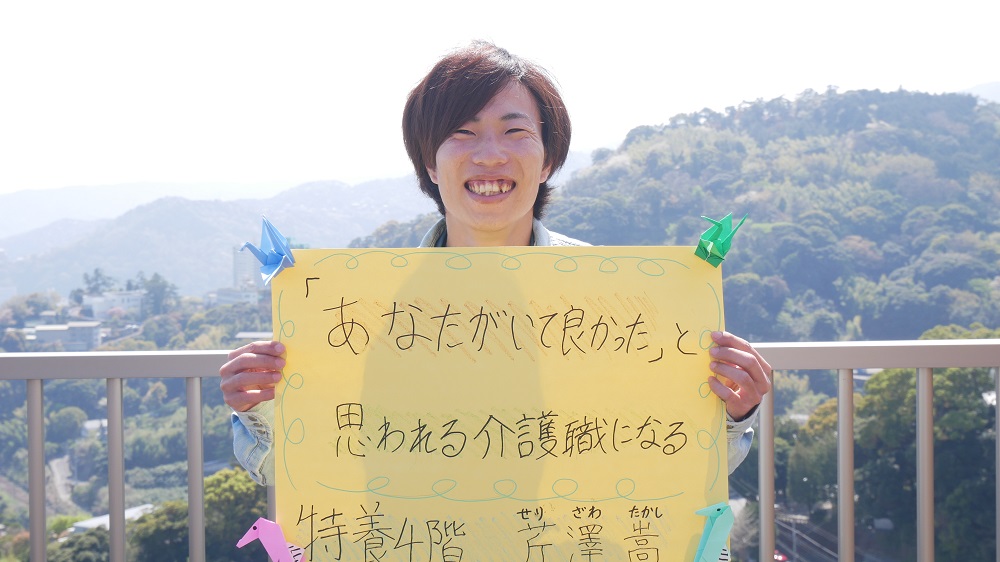 「あなたがいて良かった」と
思われる介護職になる
せり ざわ たかし
特養4階 芹澤嵩